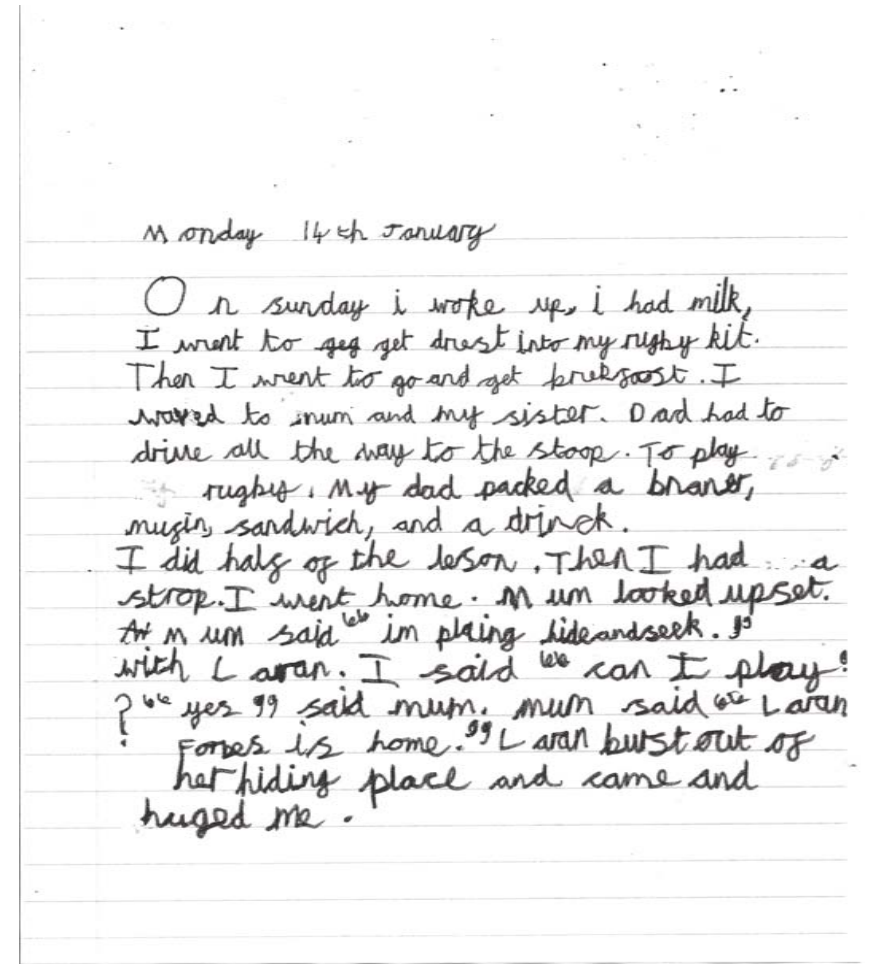 Monday 14th January
On sunday i woke up, i had milk,
I went to geg get drest into my rugby kit.
Then I went to go and get brekfast. I
waved to mum and my sister. Dad had to
drive all the way to the stoop. To play
rugby. My dad packed a
mufin, sandwich, and a drinck.
I did half of the leson. Then I had a
strop. I went home. Mum looked upset.
Mum said “im plaing hideandseek.”
with Laran. I said “can I play”
? “yes” said mum. mum said “Laran
Forbes is home.” Laran burst out of
her hiding place and came and
huged me.